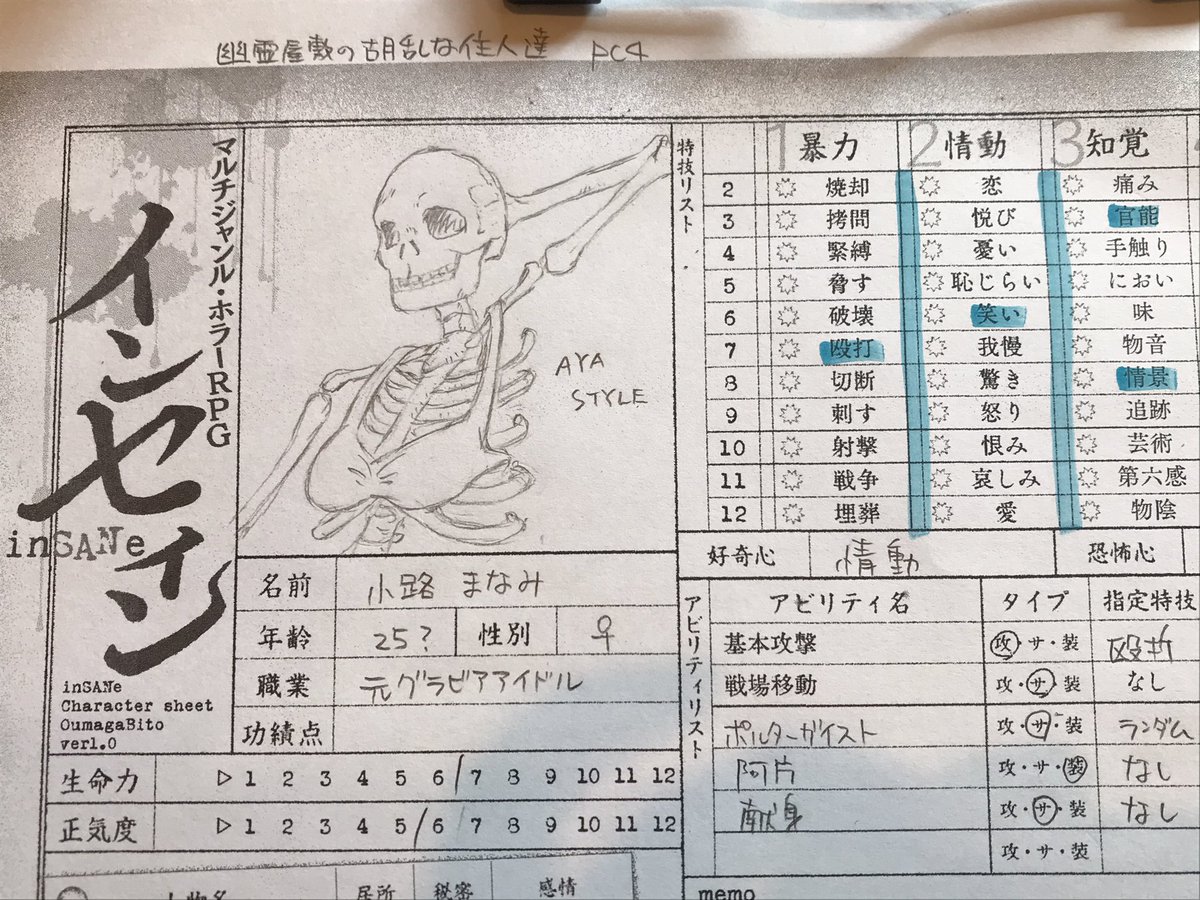 幽霊屋敷の胡乱な住人達 PC4
マルチジャンル・ホラーRPG
インセイン
inSANe
inSANe
Character sheet
OumagaBito
ver1.0
AYA
STYLE
名前 小路 まなみ
年齢 25? 性別 ♀
職業 元グラビアアイドル
功績点
生命力 ▷1 2 3 4 5 6/7 8 9 10 11 12
正気度 ▷1 2 3 4 5/6 7 8 9 10 11 12
居所 秘密 感情
特技リスト
1 暴力 2 情動 3 知覚
2 焼却 恋 痛み
3 拷問 悦び 官能
4 緊縛 憂い 手触り
5 脅す 恥じらい におい
6 破壊 笑い 味
7 殴打 我慢 物音
8 切断 驚き 情景
9 刺す 怒り 追跡
10 射撃 恨み 芸術
11 戦争 哀しみ 第六感
12 埋葬 愛 物陰
好奇心 情動 恐怖心
アビリティリスト
アビリティ名 タイプ 指定特技
基本攻撃 攻・サ・装
戦場移動 攻・サ・装 なし
ポルターガイスト 攻・サ・装 ランダム
阿片 攻・サ・装 なし
献身 攻・サ・装 なし
攻・サ・装
memo